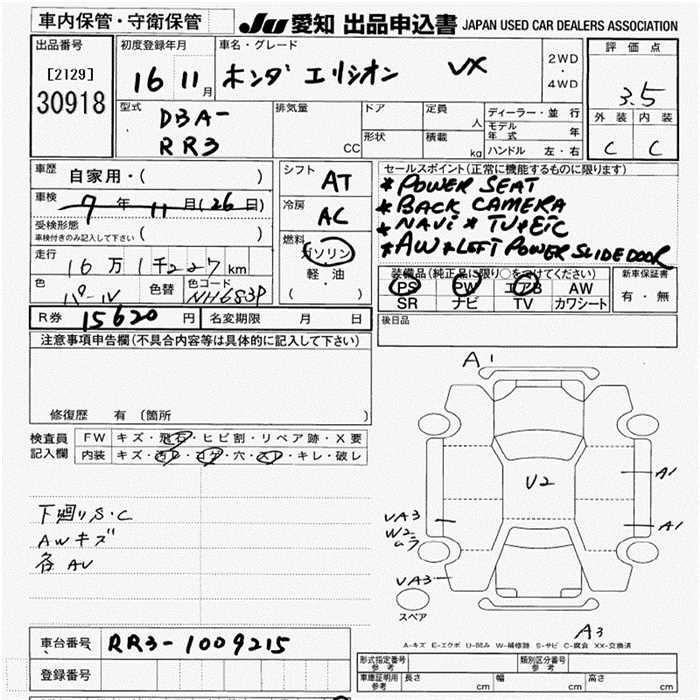 車内保管・守衛保管
JU 愛知 出品申込書 JAPAN USED CAR DEALERS ASSOCIATION
出品番号
[2129]
30918
初度登録年月
16 11月
車名・グレード
ホンダ エリシオン VX
2WD
・
4WD
評価点
3.5
外装 内装
C C
型式
DBA-
RR3
排気量
CC
ドア
形状
定員 人
積載 kg
ディーラー・並行
モデル年式 年
ハンドル 左・右
車歴
自家用・( )
車検
7年11月(26日)
受検形態
車検付きのみ記入して下さい ( )
走行
16万1千227km
色
パール
色替
色コード
NH683P
シフト
AT
冷房
AC
燃料
ガソリン
軽油
( )
セールスポイント(正常に機能するものに限ります)
*POWER SEAT
*BACK CAMERA
*NAVI *TV*ETC
*AW*LEFT POWER SLIDEDOOR
装備品(純正品に限り○をつけてください)
PS PW エアB AW
SR ナビ TV カワシート
新車保証書
有・無
R券 15620円 名変期限 月 日
後日品
注意事項申告欄(不具合内容等は具体的に記入して下さい)
修復歴 有(箇所 )
検査員
記入欄
FW キズ・飛石・ヒビ割・リペア跡・X要
内装 キズ・汚レ・コゲ・穴・スレ・キレ・破レ
下廻りS・C
AWキズ
各AU
A1
U2
A1
A1
UA3
W2
ムラ
UA3
スペア
A3
A-キズ E-エクボ U-凹み W-補修跡 S-サビ C-腐食 XX-交換済
車台番号 RR3-1009215
登録番号
形式指定番号
参考
類別区分番号
参考
車庫証明用
参考
長さ cm 幅 cm 高さ cm